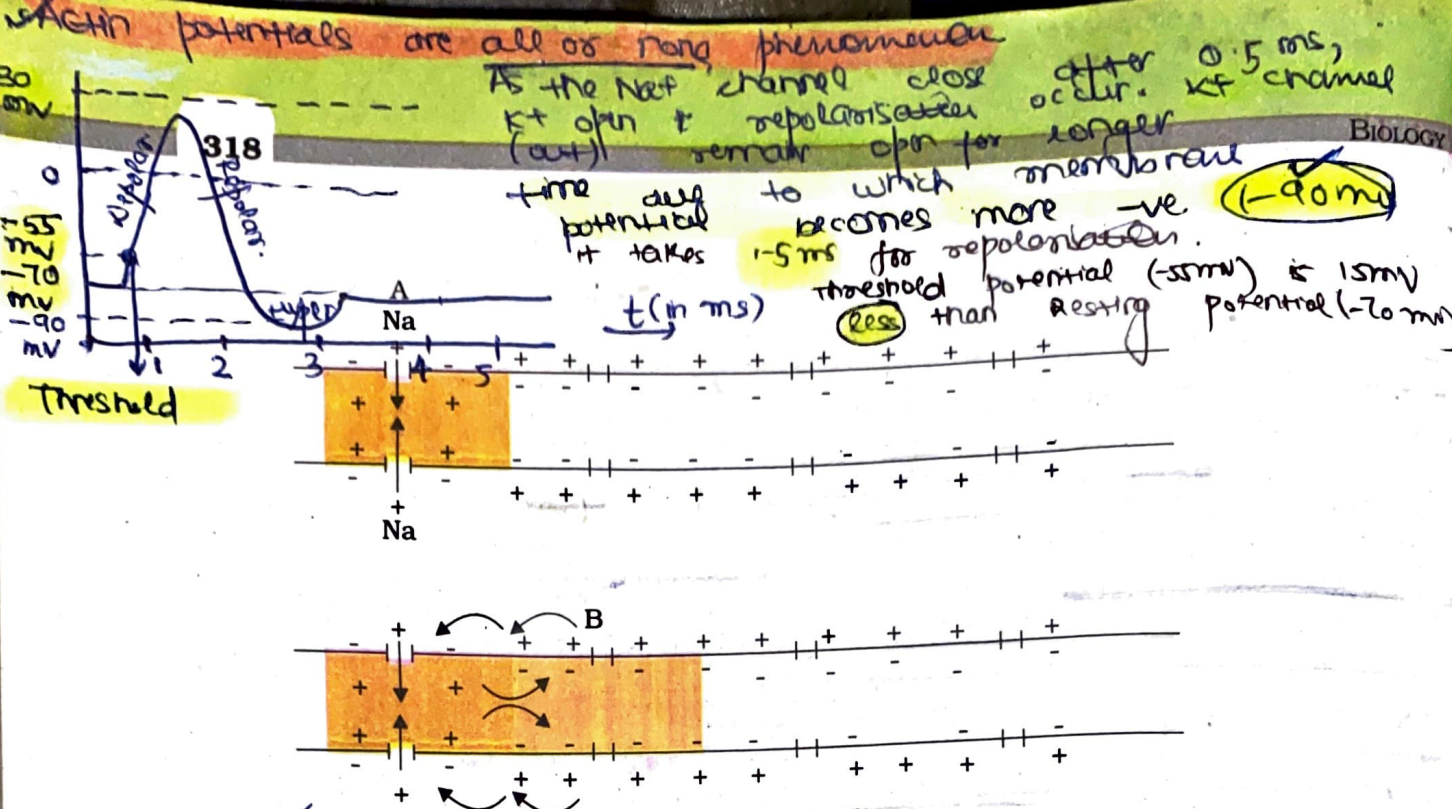 Actin potentials are all or none phenomenon
As the Na+ channel close after 0.5 ms,
K+ open & repolarisation occur. K+ channel
(out) remain open for longer
time due to which membrane
potential becomes more -ve (-90 mv)
it takes 1-5 ms for repolarisation.
Threshold potential (-55mV) is 15mV
less than Resting potential (-70 mv
BIOLOGY
318
30
mv
0
-55
mv
-70
mv
-90
mv
Depolar
repolar.
Hyper
1 2 3 4 5
t(in ms)
Threshold
A
Na
+
- - + + + + + + + + +
- - - - - - - -
+ +
+ +
- - - - - - - - -
- - + + + + + + + + +
+
Na
B
+
- - + + + + + + + + +
- - - - - - - - -
+ +
+ +
- - - - - - - - -
- - + + + + + + + + +
+